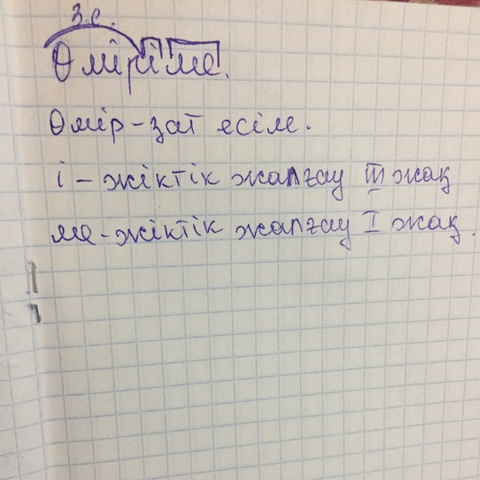 з.е.
Өміріме.
Өмір-зат есім.
і - жіктік жалғау III жақ
ме-жіктік жалғау I жақ.